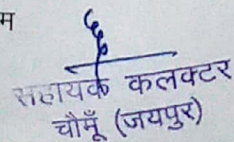 म
सहायक कलक्टर
चौमूँ (जयपुर)